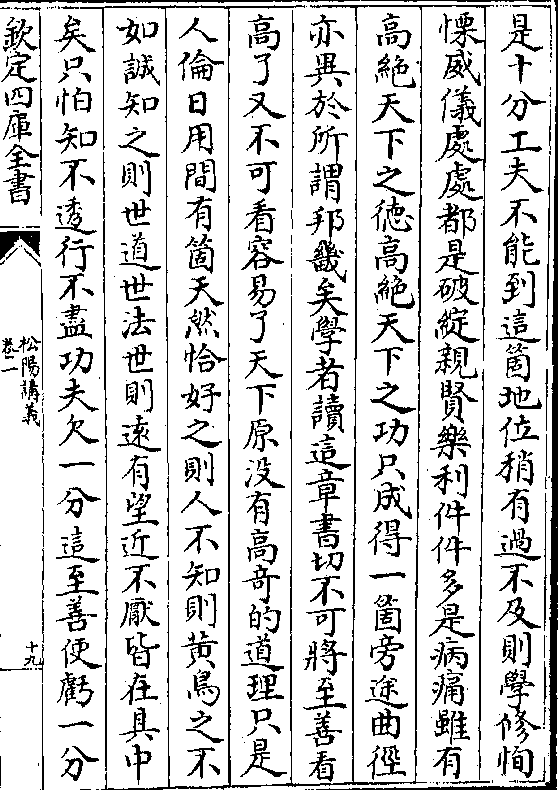 是十分工夫不能到這箇地位稍有過不及則學修恂
慄威儀處處都是破綻親賢樂利件件多是病痛雖有
高絶天下之德高絶天下之功只成得一箇旁途曲徑
亦異於所謂邦畿矣學者讀這章書切不可將至善看
高了又不可看容易了天下原没有高竒的道理只是
人倫日用間有箇天然恰好之則人不知則黄鳥之不
如誠知之則世道世法世則逺有望近不厭皆在其中
矣只怕知不透行不盡功夫欠一分這至善便虧一分
欽定四庫全書
松陽講義
卷一
十九